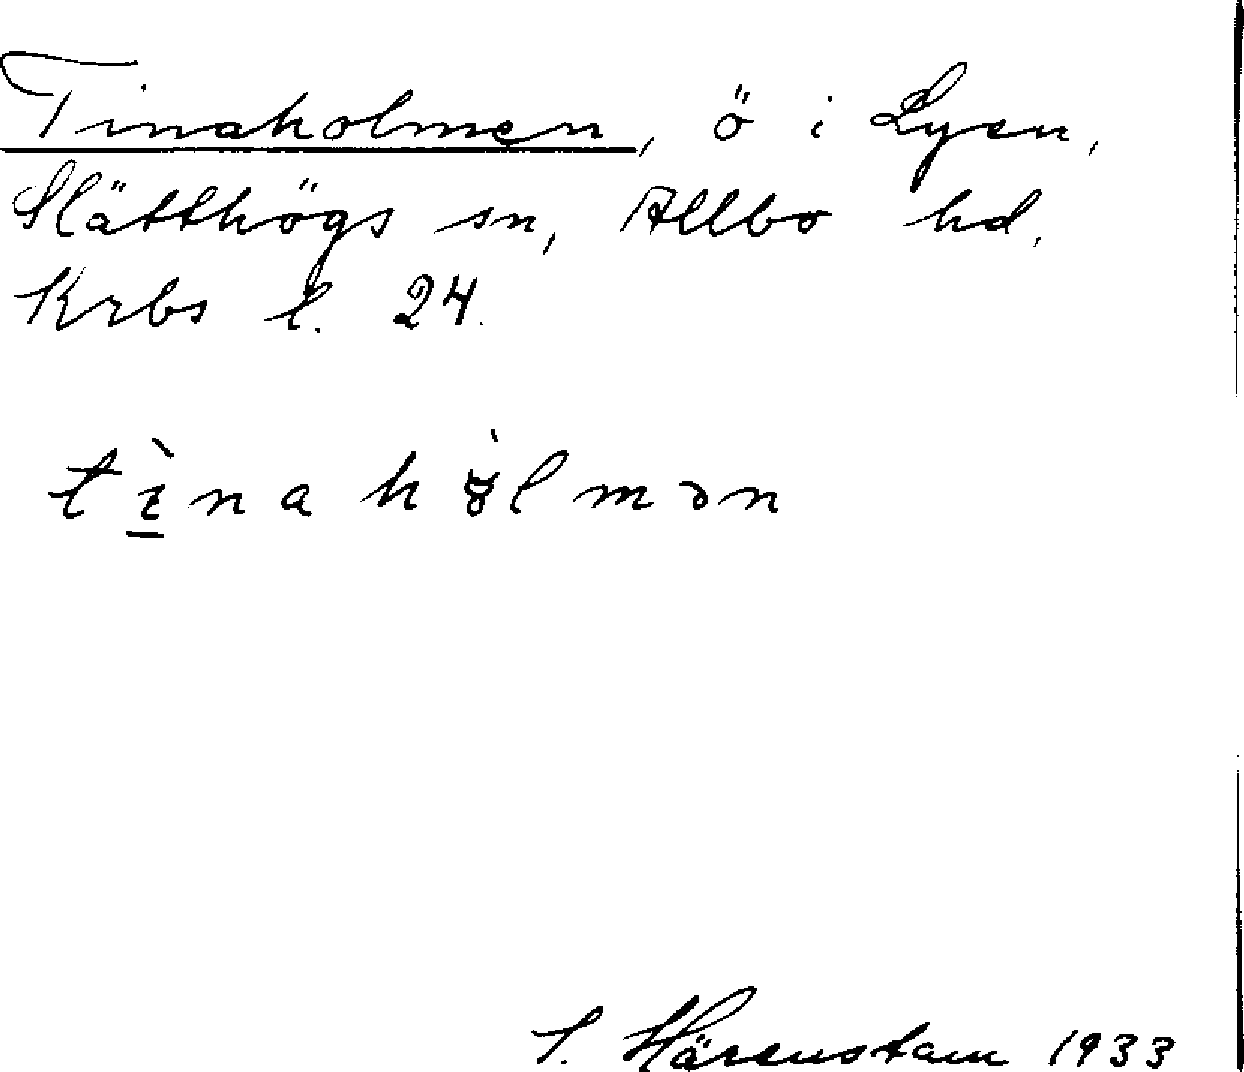 Tinaholmen, ö i Lyen,
Slätthögs sn, Allbo hd.
Krbs l. 24.
tìnahòlmən
S. Härenstam 1933